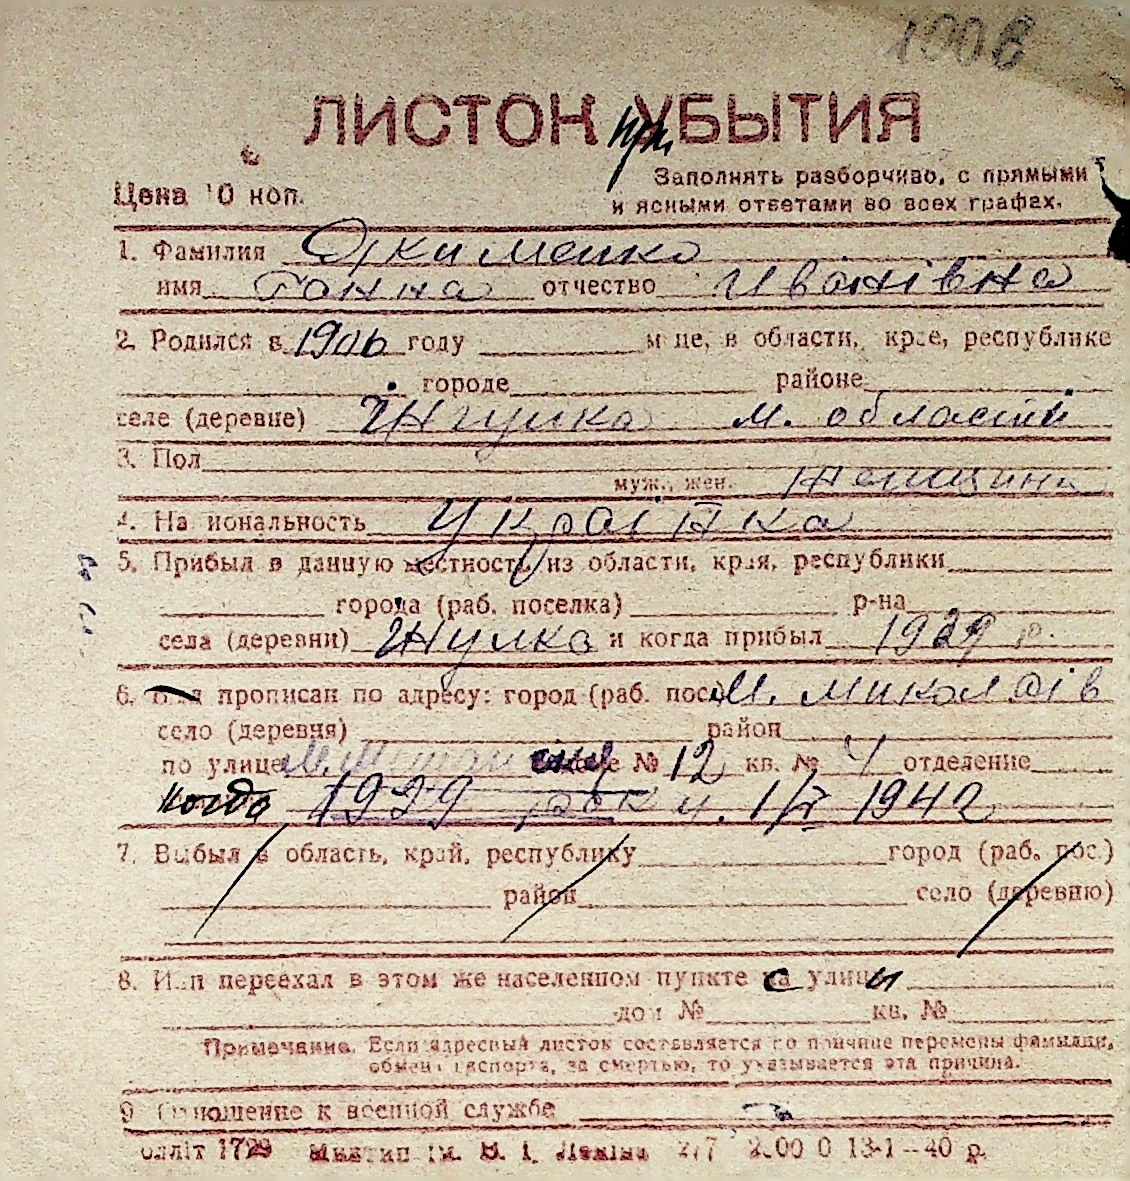 1006
ЛИСТОК при УБЫТИЯ
Цена 10 коп.
Заполнять разборчиво, с прямыми
и ясными ответами во всех графах.
1. Фамилия Якименко
имя Ганна отчество Иванівна
2. Родился в 1906 году м-це, в области, крае, республике
городе районе
селе (деревне) Інгулка М. області
3. Пол
муж., жен. Женщина
4. Национальность Українка
5. Прибыл в данную местность из области, края, республики
города (раб. поселка) р-на
села (деревни) и когда прибыл 1929 р.
6. Был прописан по адресу: город (раб. пос.) М. Миколаїв
село (деревня) район
по улице № 12 кв. № 4 отделение
когда 1929 року. 1/V 1942
7. Выбыл в область, край, республику город (раб. пос.)
район село (деревню)
8. Или переехал в этом же населенном пункте с улицы
дом № кв. №
Примечание. Если адресный листок составляется по причине перемены фамилии,
обмена паспорта, за смертью, то указывается эта причина.
9. Отношение к военной службе
олліт 1729 им. В. І. Леніна 13-1-40 р.